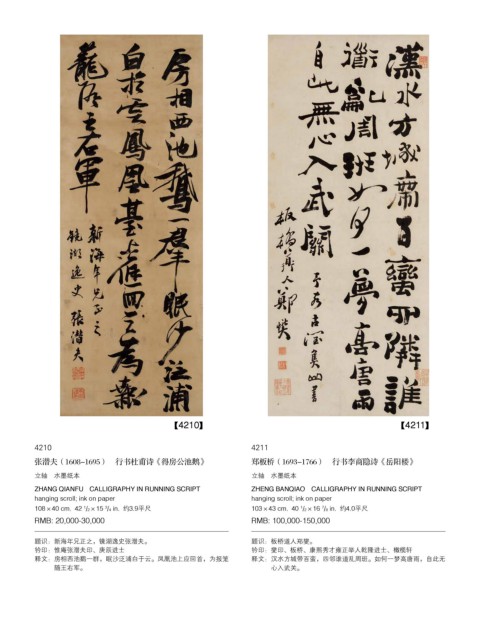 房相西池鵞一羣眠沙泛浦
白於雲鳳凰臺上應回首為報
籠隨王右軍
新海年兄正之
鏡湖逸史 張潛夫
【4210】
漢水方城帶百蠻四鄰誰
道亂周班如何一夢高唐雨
自此無心入武關
板橋道人鄭燮
【4211】
4210
张潜夫(1608-1695) 行书杜甫诗《得房公池鹅》
立轴 水墨纸本
ZHANG QIANFU CALLIGRAPHY IN RUNNING SCRIPT
hanging scroll; ink on paper
108×40 cm. 42 1/2×15 3/4 in. 约3.9平尺
RMB: 20,000-30,000
题识:新海年兄正之,镜湖逸史张潜夫。
钤印:惟庵张潜夫印、庚辰进士
释文:房相西池鹅一群,眠沙泛浦白于云。凤凰池上应回首,为报笼
随王右军。
4211
郑板桥(1693-1766) 行书李商隐诗《岳阳楼》
立轴 水墨纸本
ZHENG BANQIAO CALLIGRAPHY IN RUNNING SCRIPT
hanging scroll; ink on paper
103×43 cm. 40 1/2×16 7/8 in. 约4.0平尺
RMB: 100,000-150,000
题识:板桥道人郑燮。
钤印:燮印、板桥、康熙秀才雍正举人乾隆进士、橄榄轩
释文:汉水方城带百蛮,四邻谁道乱周班。如何一梦高唐雨,自此无
心入武关。